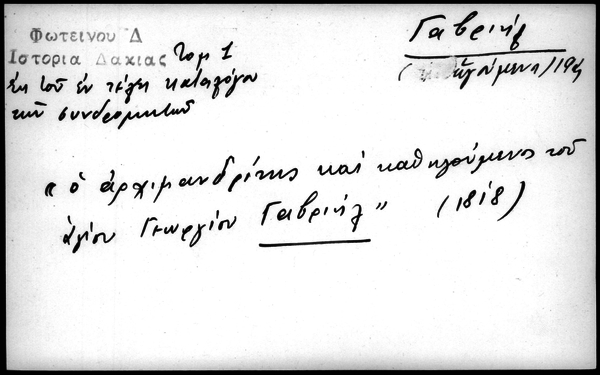 Φωτεινου Δ
Ιστορια Δακιας Τομ 1
Εκ του εν τέλει καταλόγου
των συνδρομητων
Γαβριήλ
(ηγούμενος) 19
« ὁ ἀρχιμανδρίτης καὶ καθηγούμενος τοῦ
ἁγίου Γεωργίου Γαβριήλ" (1818)